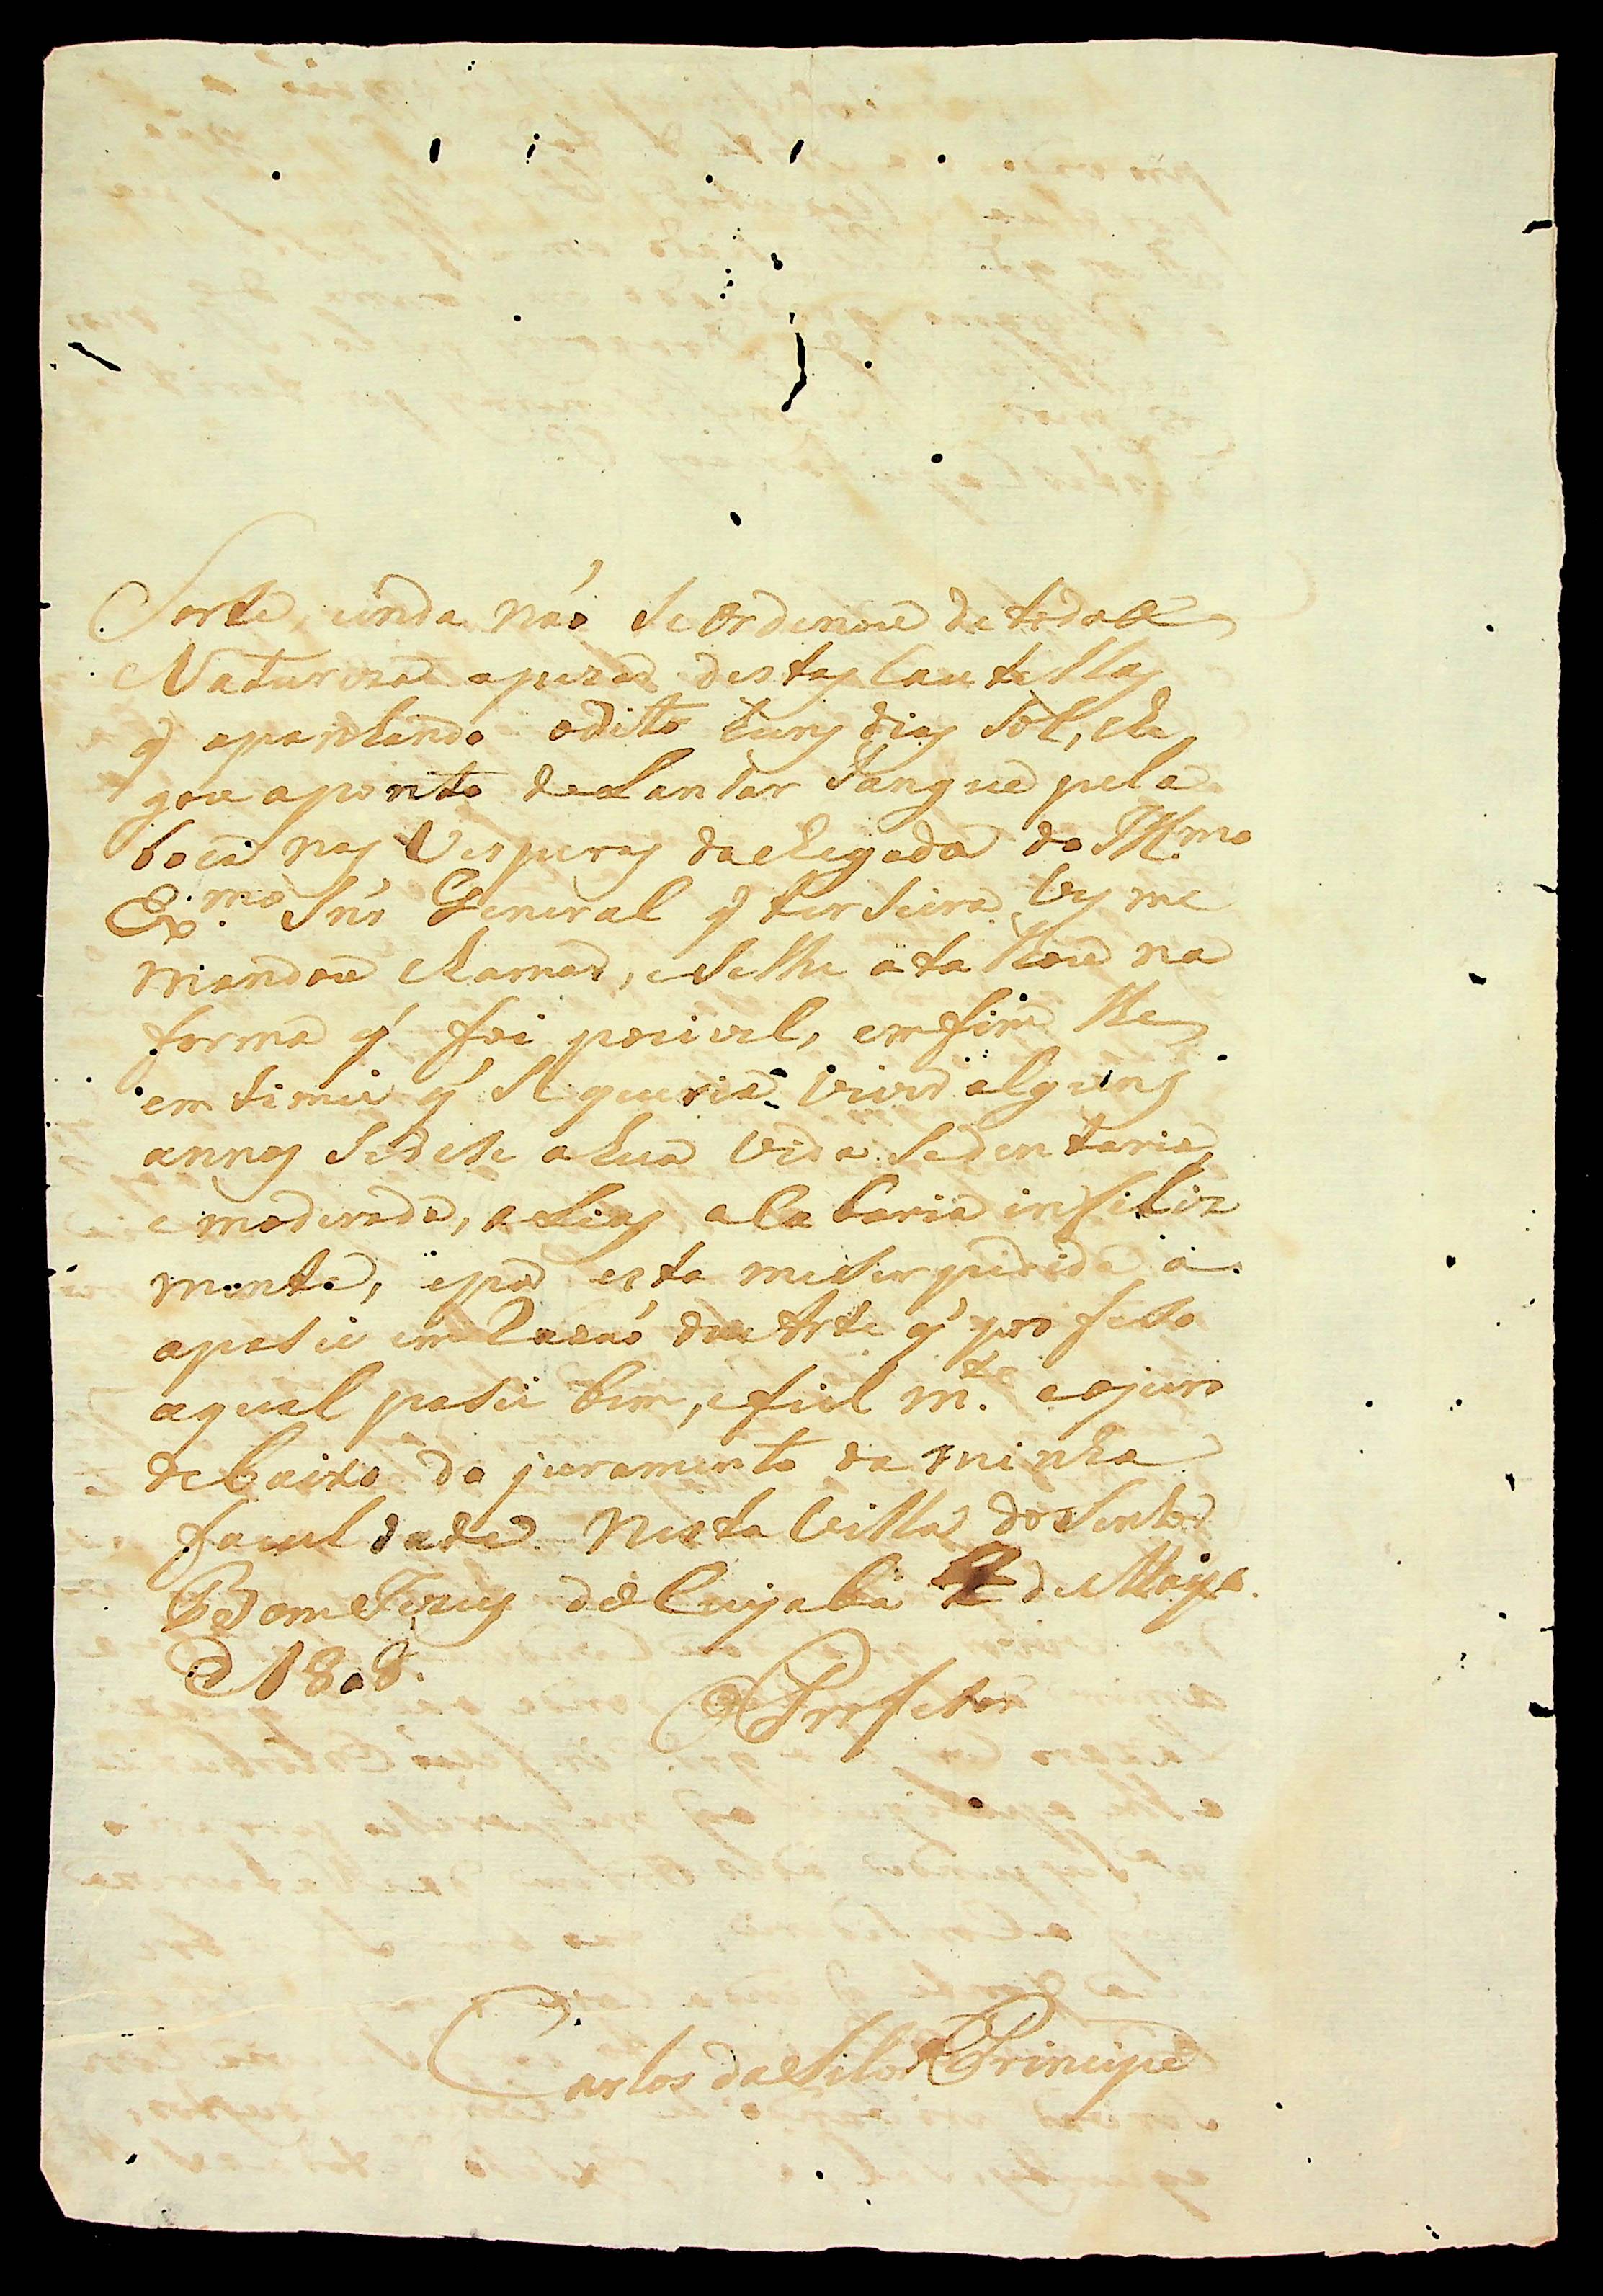 Sorte, ainda não Se Ordenou de toda a
Natureza apezar destas Cautellas
q' apanhando o dito huns dias Sol, che
gou aponto de Lansar Sangue pela
boca nas Vesperas da chegada do Ill.mo
Ex.mo Snr General q' terSeira ves me
mandou chamar, eSelhe atalhou na
forma q' foi pocivel, emfim lhe
emtimei q' Se queria viver alguns
annos SedeSe ahua Vida Sedentaria
e moderada, alias acabaria infeliz
mente, epor esta meSer pidida a
apaSei em Razaõ da Arte q' profeSo
aqual paSei bem, efiel m.te eojuro
debaixo do juramento da minha
faculdade Nesta Villa do Senhor
Bom Jezus do Cuyaba de Mayo
d 1808.
O Profeçor
Carlos da Silva Principe